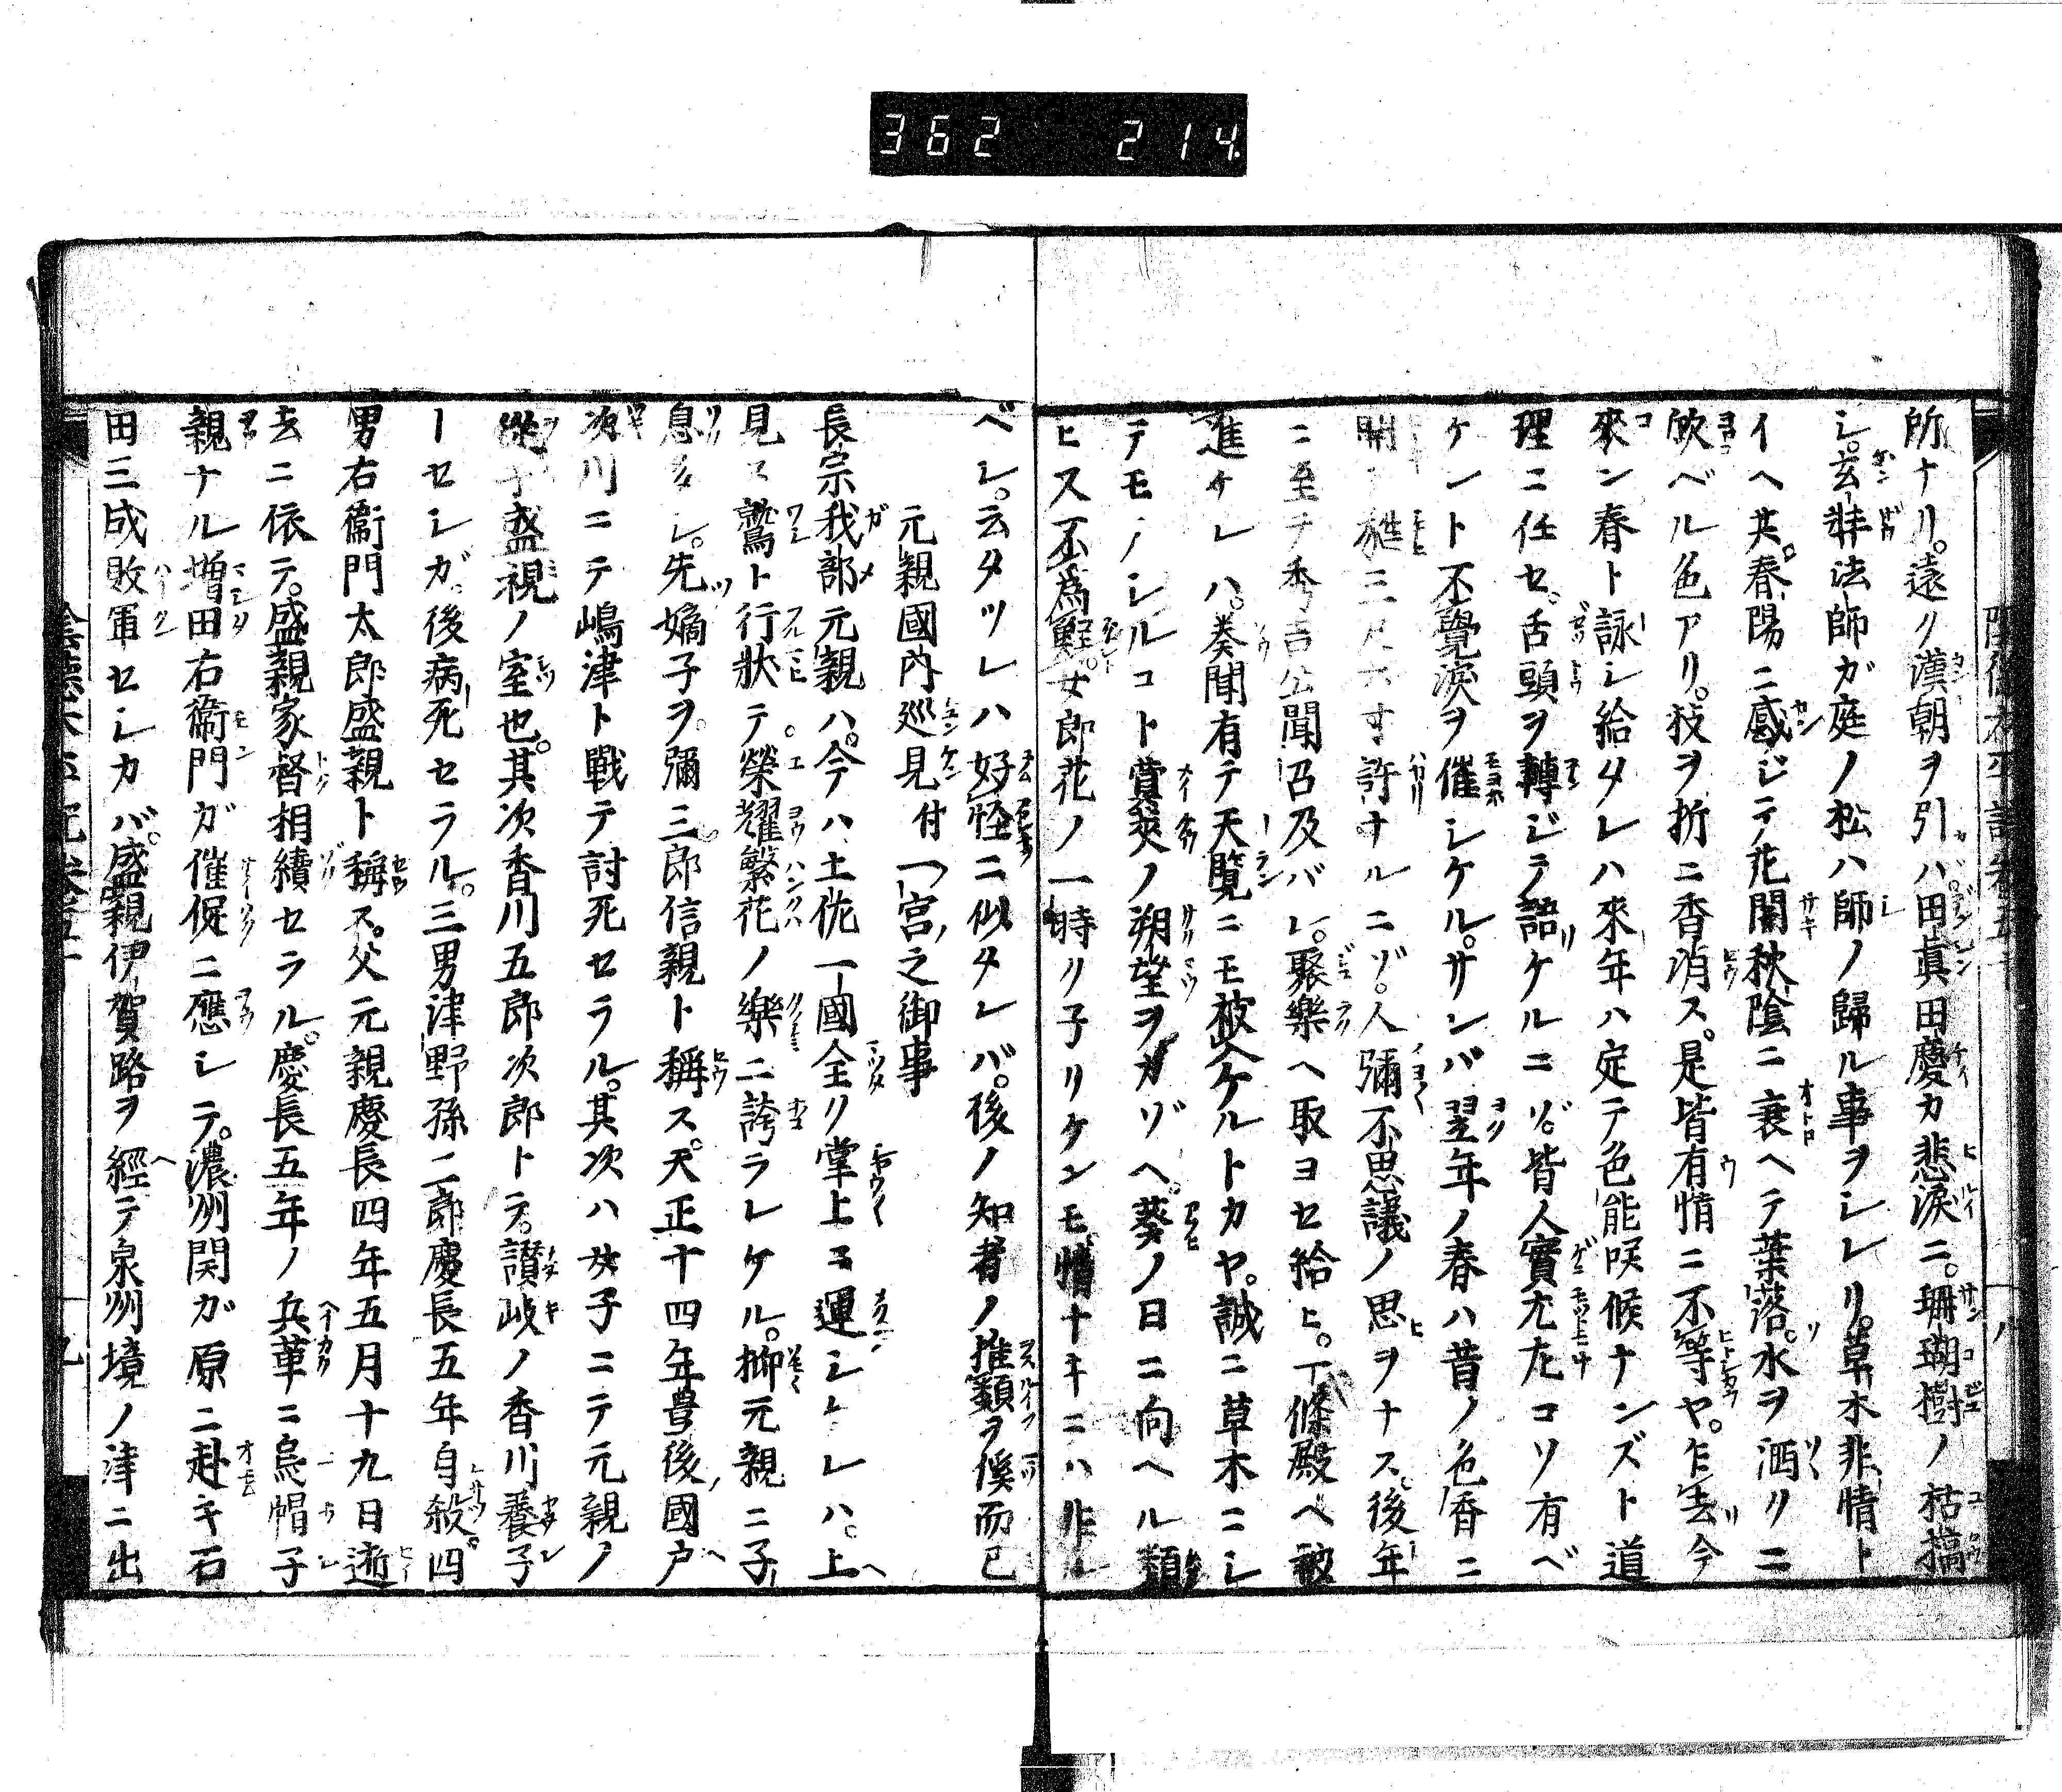 362 214
所ナリ。遠ク漢朝ヲ引ハ。田眞田慶カ悲涙ニ。珊瑚樹ノ枯槁
シ。玄弉法師ガ庭ノ松ハ師ノ歸ル事ヲシレリ。草木非情ト
イヘ共。春陽ニ感ジテ花開秋陰ニ衰ヘテ葉落。水ヲ洒クニ
歓ベル色アリ。枝ヲ折ニ香消ス。是皆有情ニ不等ヤ。乍去今
來ン春ト詠シ給タレハ來年ハ定テ色能咲候ナンズト道
理ニ任セ。舌頭ヲ轉ジテ語ケルニゾ。皆人實尤左コソ有ベ
ケント不覺涙ヲ催シケル。サンバ翌年ノ春ハ昔ノ色香ニ
開 三尺 寸許ナルニゾ。人彌不思議ノ思ヲナス。後年
ニ至テ秀吉公聞召及バレ。聚樂ヘ取ヨセ給ヒ。一條殿ヘ被
進ケレハ。奏聞有テ天覽ニモ被入ケルトカヤ。誠ニ草木ニシ
テモノシルコト蓂莢ノ朔望ヲカゾヘ。葵ノ日ニ向ヘル類
ヒス不為 女郎花ノ一時リ子リケンモ情ナキニハ非ル
ベシ。云タツレハ好怪ニ似タレバ。後ノ知者ノ推類ヲ俟而已
元親國内巡見付一宮之御事
長宗我部元親ハ。今ハ土佐一國全ク掌上ニ運シケレハ。上
見ヌ鷲ト行狀テ榮耀繁花ノ樂ニ誇ラレケル。抑元親ニ子
息多シ。先嫡子ヲ。彌三郎信親ト稱ス。天正十四年豊後國戸
次川ニテ嶋津ト戰テ討死セラル。其次ハ女子ニテ元親ノ
從子盛視ノ室也。其次香川五郎次郎トテ。讃岐ノ香川養子
ーセシガ。後病死セラル。三男津野孫二郎慶長五年自殺。四
男右衞門太郎盛親ト稱ス。父元親慶長四年五月十九日逝
去ニ依テ。盛親家督相續セラル。慶長五年ノ兵革ニ烏帽子
親ナル増田右衞門ガ催促ニ應シテ。濃州関が原ニ赴キ石
田三成敗軍セシカバ。盛親伊賀路ヲ經テ泉州境ノ津ニ出